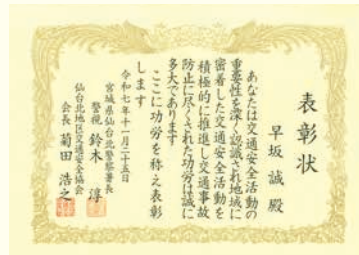 表彰状
早坂 誠 殿
あなたは交通安全活動の
重要性を深く認識され地域に
密着した交通安全活動を
積極的に推進し交通事故
防止に尽くされた功労は誠に
多大であります
ここに功労を称え表彰
します
令和七年十一月二十五日
宮城県仙台北警察署長
警視 鈴木 淳
仙台北地区交通安全協会
会長 菊田 浩之